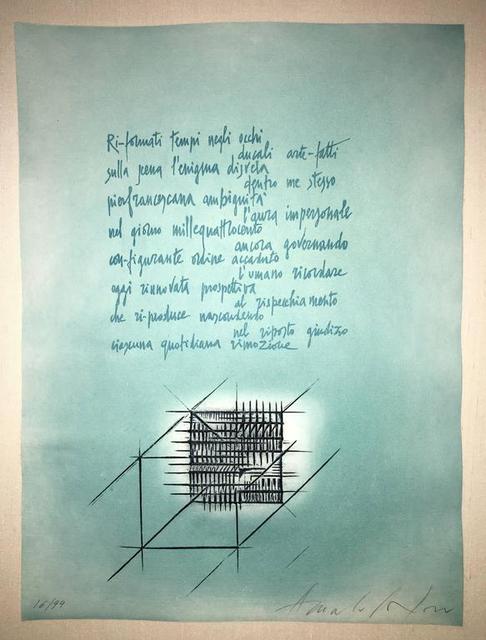 Ri-formati tempi negli occhi
ducali arte-fatti
sulla scena l'enigma disvela
dentro me stesso
pierfrancescana ambiguità
l'aura impersonale
nel giorno millequattrocento
ancora governando
con-figurante ordine accaduto
l'umano ricordare
oggi rinnovata prospettiva
al rispecchiamento
che ri-produce nascondendo
nel riposto giudizio
ciascuna quotidiana rimozione
16/99